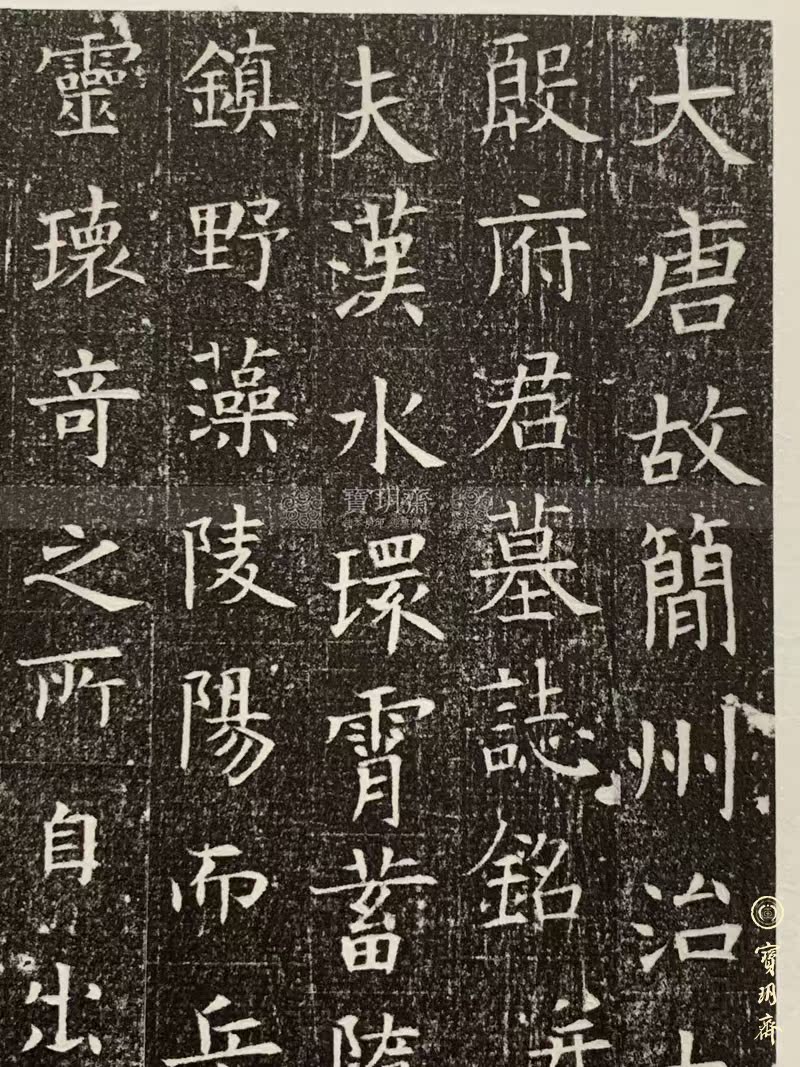 大唐故簡州治
殷府君墓誌銘并
夫漢水環霄蓄
鎮野藻陵陽而
靈瓌竒之所自出
寶玥齋
寶玥齋